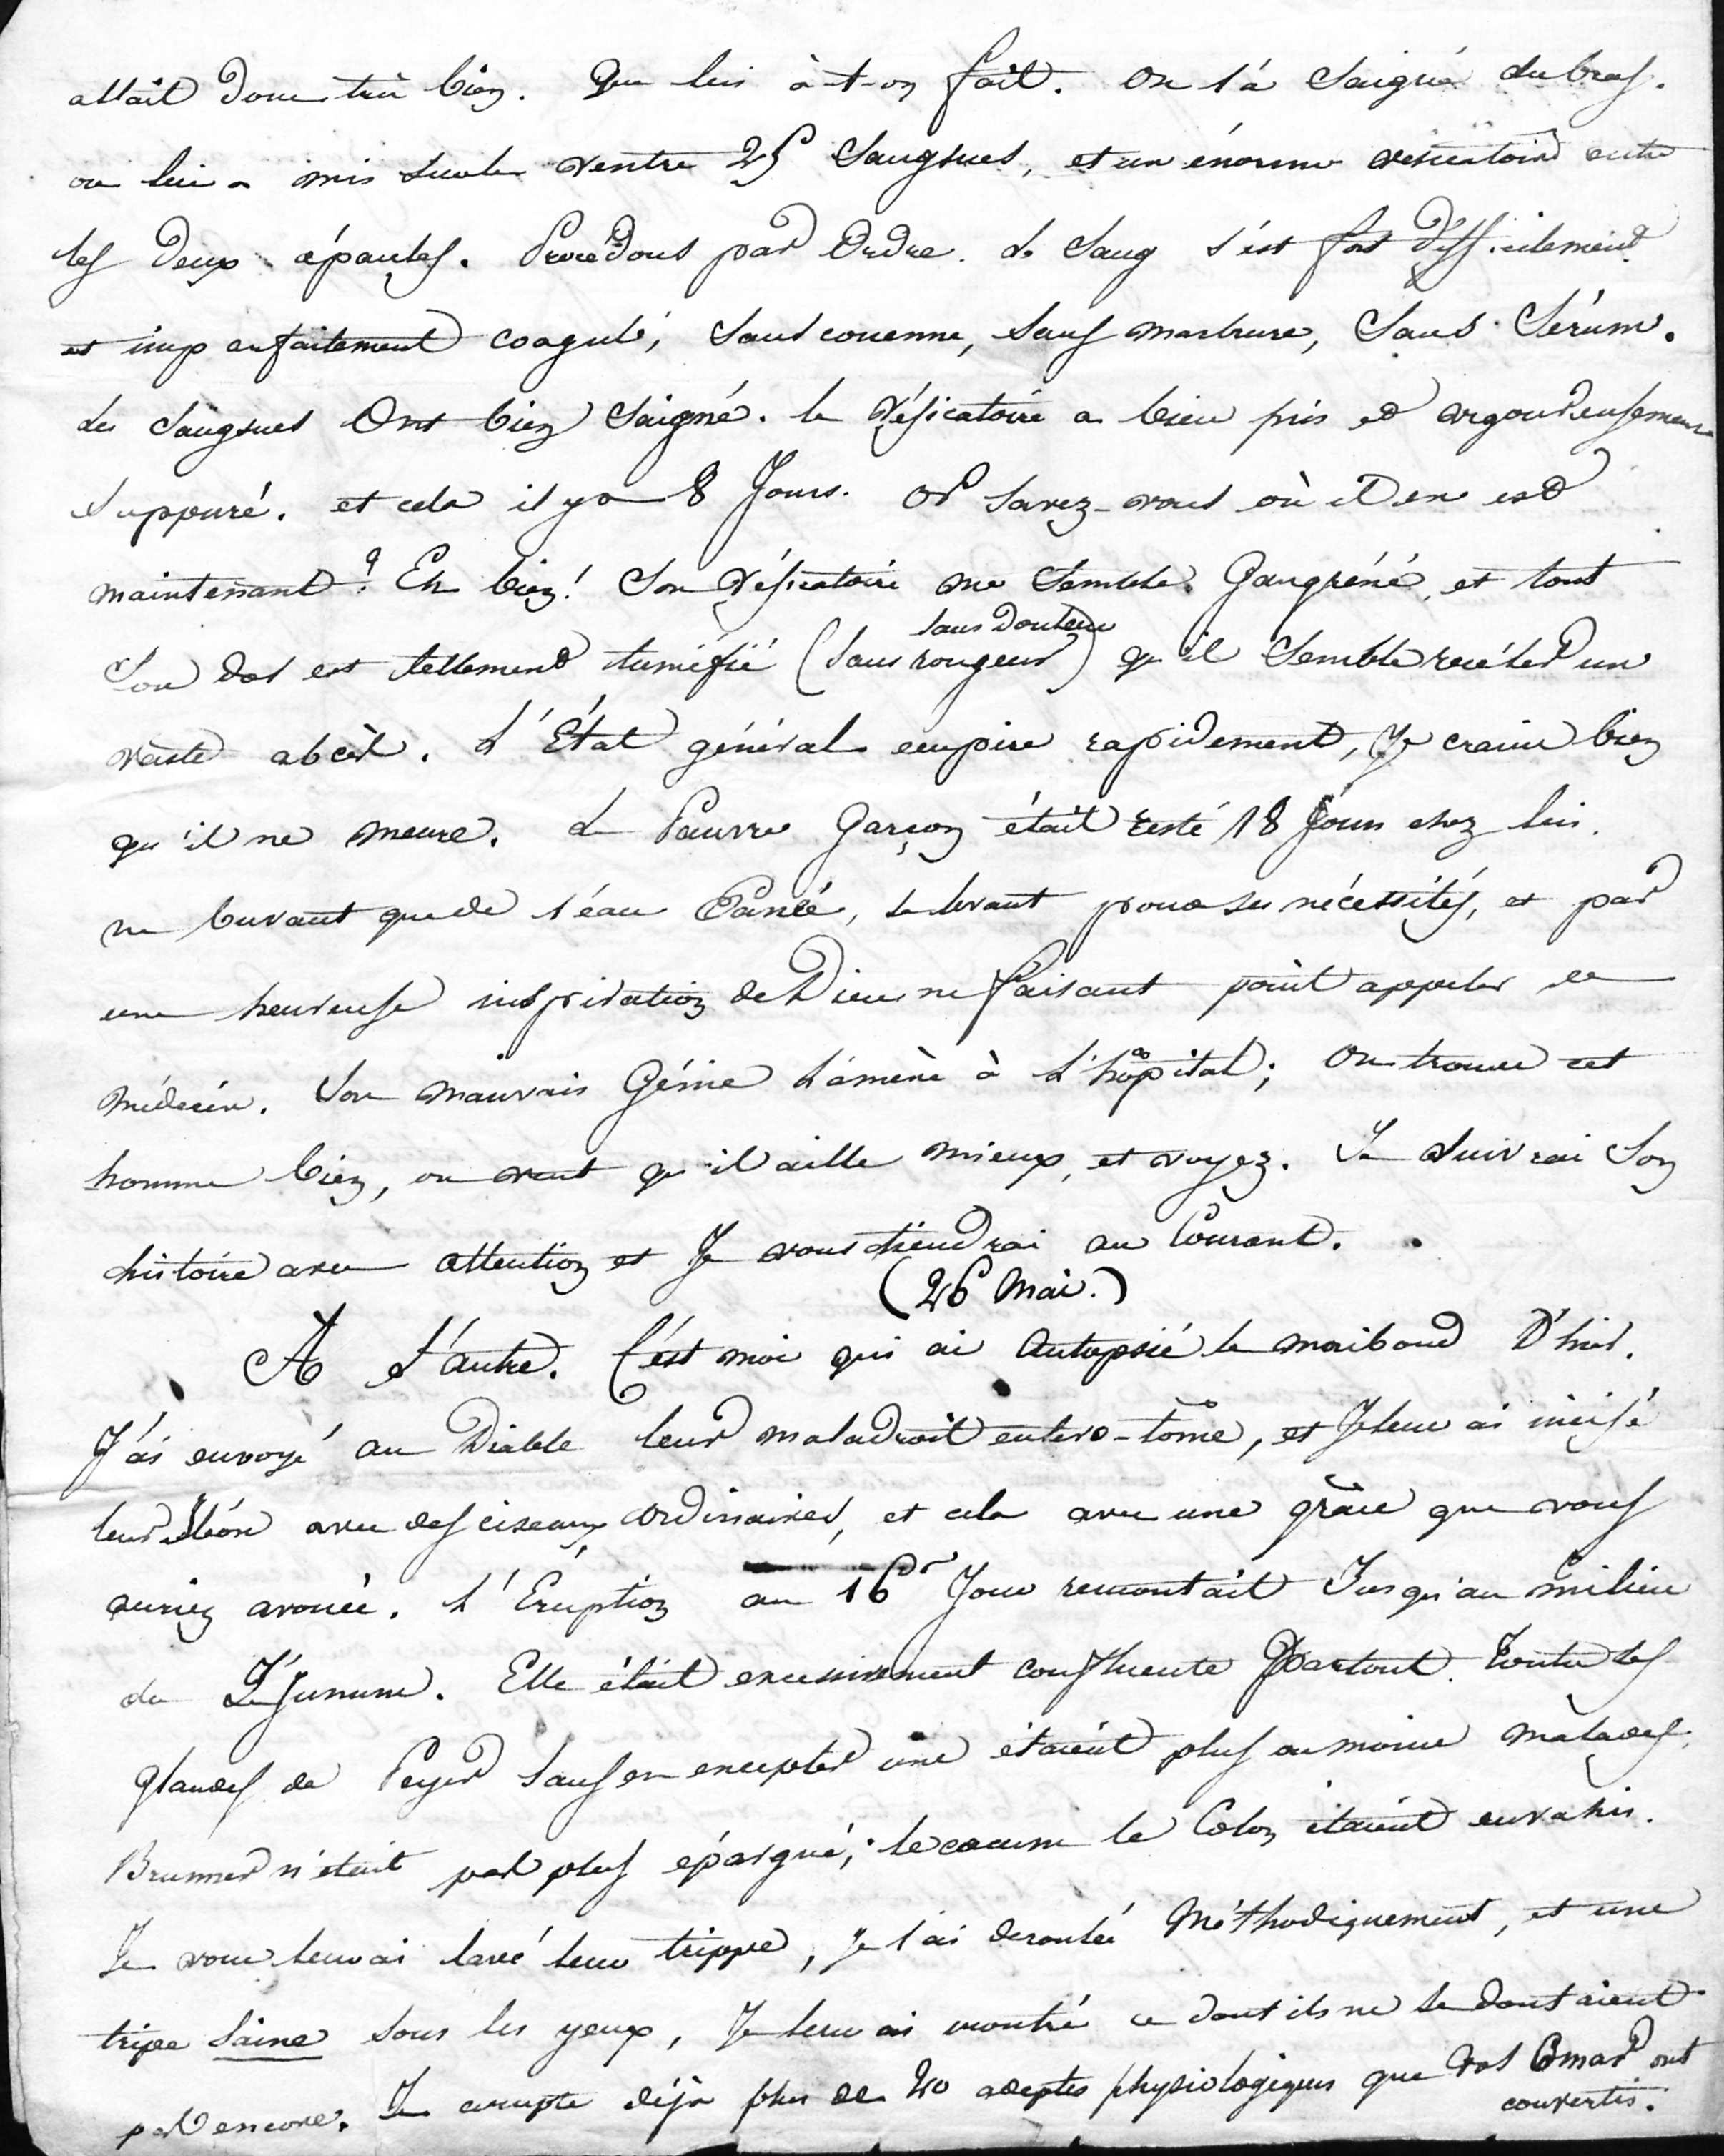 allait donc très bien. Que lui à-t-on fait. On l'a Saigné du bras.
on lui a mis sur le ventre 25 Sangsues, et un énorme vésicatoire entre
les deux épaules. Procédons par Ordre. Le Sang s'est fort difficilement
et imparfaitement coagulé, Sans couenne, sans marbrure, Sans Sérum.
Les Sangsues Ont bien Saigné. le Vésicatoire a bien pris et vigoureusement
Suppuré. et cela il y a 8 Jours. Or Savez-vous où il en est
maintenant? Eh bien! Son Vésicatoire me Semble Gangréné, et tout
Son dos est tellement tuméfié (Sans rougeur sans douleur) qu'il Semble recéler un
vaste abcès. L'État général empire rapidement, Je crains bien
qu'il ne meure. Le Pauvre Garçon était resté 18 Jours chez lui.
ne buvant que de l'eau Panée, se levant pour ses nécessités, et par
une heureuse inspiration de Dieu ne faisant point appeler de
Médecin. Son mauvais Génie l'amène à l'hôpital; On trouve cet
homme bien, on veut qu'il aille mieux, et voyez. Je Suivrai Son
histoire avec attention et Je vous tiendrai au Courant.
(26 Mai.)
A l'autre. C'est moi qui ai Autopsié le moribond D'hier.
J'ai envoyé au Diable leur maladroit entero-tôme, et Je leur ai incisé
leur iléon avec des ciseaux ordinaires, et cela avec une grâce que vous
auriez avouée. L'Éruption au 16e Jour remontait Jusqu'au milieu
du Jéjunum. Elle était excessivement confluente Partout. Toutes les
glandes de Peyer sans en excepter une étaient plus ou moins malades.
Brunner n'était pas plus épargné; le cœcum le Colon étaient envahis.
Je vous leur ai lavé leur trippe, Je l'ai deroulée Méthodiquement, et une
tripe Saine sous les yeux, Je leur ai montré ce dont ils ne se doutaient
pas encore. Je compte déjà plus de 20 adeptes physiologiques que vos ont
convertis.